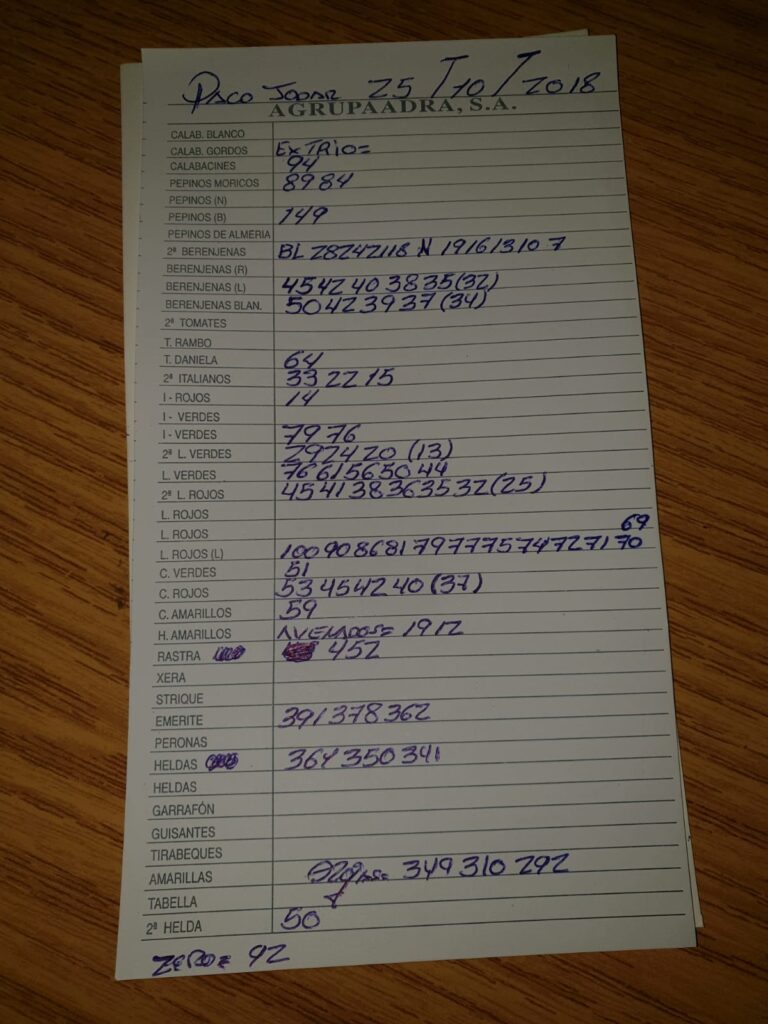 PACO JODAR 25/10/2018
AGRUPAADRA, S.A.
CALAB. BLANCO
CALAB. GORDOS EXTRIO=
CALABACINES 94
PEPINOS MORICOS 89 84
PEPINOS (N)
PEPINOS (B) 149
PEPINOS DE ALMERIA
2ª BERENJENAS BL 28242118 N 191613107
BERENJENAS (R)
BERENJENAS (L) 45 42 40 38 35 (32)
BERENJENAS BLAN. 50 42 39 37 (34)
2ª TOMATES
T. RAMBO
T. DANIELA 64
2ª ITALIANOS 33 22 15
I - ROJOS 14
I - VERDES
I - VERDES 79 76
2ª L. VERDES 29 24 20 (13)
L. VERDES 76 61 56 50 44
2ª L. ROJOS 45 41 38 36 35 32 (25)
L. ROJOS
L. ROJOS 69
L. ROJOS (L) 100 90 86 81 79 77 75 74 72 71 70
C. VERDES 51
C. ROJOS 53 45 42 40 (37)
C. AMARILLOS 59
H. AMARILLOS 19 12
RASTRA 452
XERA
STRIQUE
EMERITE 391 378 362
PERONAS
HELDAS 364 350 341
HELDAS
GARRAFÓN
GUISANTES
TIRABEQUES
AMARILLAS 349 310 292
TABELLA
2ª HELDA 50
ZERO= 92